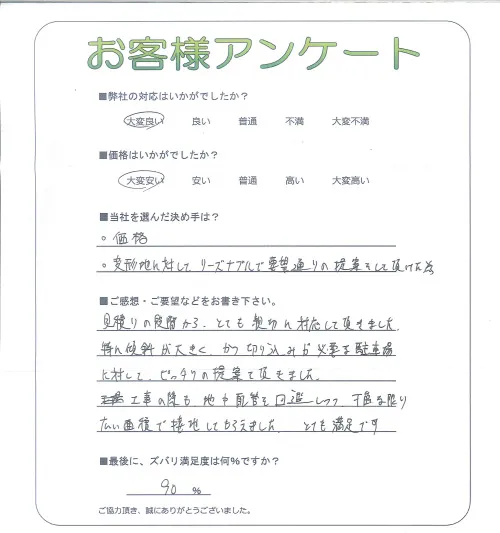 お客様アンケート
■弊社の対応はいかがでしたか？
大変良い 良い 普通 不満 大変不満
■価格はいかがでしたか？
大変安い 安い 普通 高い 大変高い
■当社を選んだ決め手は？
○ 価格
○ 変形地に対して リーズナブルで要望通りの提案をして頂けた為
■ご感想・ご要望などをお書き下さい。
見積りの段階から、とても親切に対応して頂きました。
特に傾斜が大きく、かつ切り込みが必要な駐車場
に対して、ピッタリの提案て頂きました。
工事の際も 地中配管を回避しつつ、可能な限り
広い面積で接地してもらえました。 とても満足です
■最後に、ズバリ満足度は何%ですか？
90 %
ご協力頂き、誠にありがとうございました。